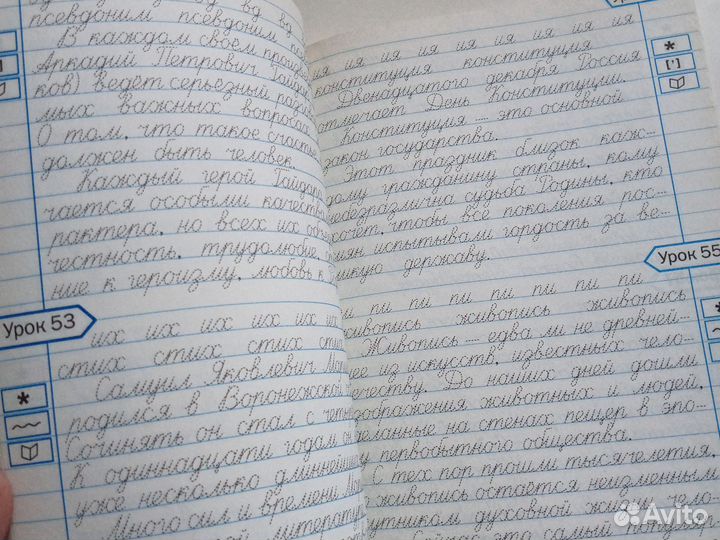 псевдоним псевдоним
В каждом своём
Аркадий Петрович
ков) ведёт серьёзный
мых важных
О том, что такое счастье
должен быть человек
Каждый герой
чается особыми
рактера, но всех их
честность, трудолюбие,
ние к героизму, любовь к
Урок 53
их их их их их
стих стих стих
Самуил Яковлевич
родился в Воронежской
Сочинять он стал с
К одиннадцати годам он
уже несколько
Много сил и времени
ия ия ия ия ия ия ия ия
конституция конституция
Двенадцатого декабря Россия
отмечает День Конституции.
Конституция — это основной
закон государства.
Этот праздник близок каж-
дому гражданину страны, кому
небезразлична судьба Родины, кто
хочет, чтобы все поколения рос-
сиян испытывали гордость за ве-
ликую державу.
Урок 55
пи пи пи пи пи пи
живопись живопись живопись
Живопись — едва ли не древней-
шее из искусств, известных чело-
вечеству. До наших дней дошли
изображения животных и людей,
сделанные на стенах пещер в эпо-
первобытного общества.
С тех пор прошли тысячелетия,
живопись остаётся неизменным
спутником духовной жизни чело-
это самый
Avito